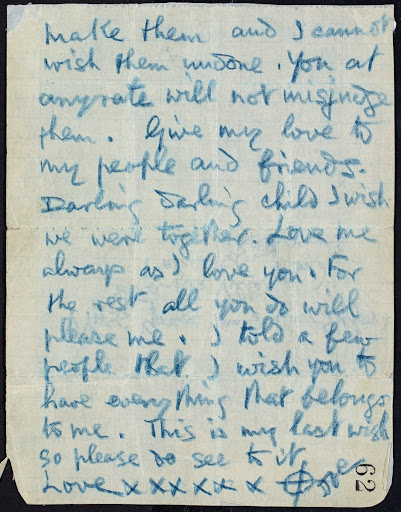 make them and I cannot
wish them undone. You at
anyrate will not misjudge
them. Give my love to
my people and friends.
Darling Darling child I wish
we were together. Love me
always as I love you. For
the rest all you do will
please me. I told a few
people that I wish you to
have everything that belongs
to me. This is my last wish
so please do see to it
Love x x x x x x
62